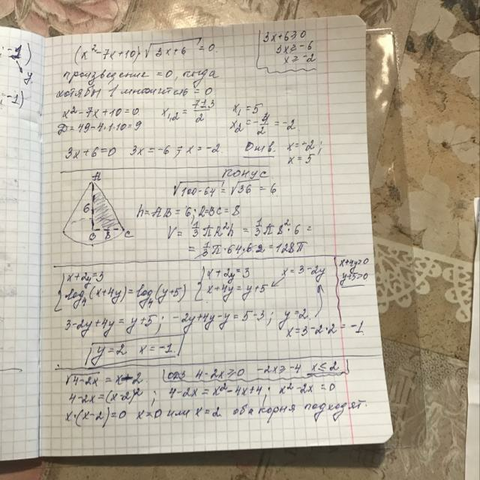 (x²-7x+10)·√3x+6 = 0
3x+6≥0
3x≥-6
x≥-2
произведение =0, когда
хотя бы 1 множитель = 0
x²-7x+10=0
x₁,₂ = 7±3/2
x₁ = 5
D=49-4·1·10=9
x₂ = -4/2 = -2
3x+6=0 3x=-6; x=-2
Отв. x=-2;
x=5
конус
√100-64 = √36 = 6
A
6
B 8 C
h=AB=6; R=BC=8
V = 1/3 πR²h = 1/3 π8²·6 =
= 1/3 π·64·6·2 = 128π
{ x+2y=3
log₄(x+4y)=log₄(y+5)
{ x+2y=3
x+4y=y+5
x=3-2y
x+4y>0
y+5>0
3-2y+4y=y+5; -2y+4y-y=5-3; y=2
x=3-2·2=-1
y=2 x=-1
√4-2x = x-2
ОДЗ 4-2x≥0 -2x≥-4 x≤2
4-2x=(x-2)²; 4-2x=x²-4x+4; x²-2x=0
x·(x-2)=0 x=0 или x=2 оба корня подходят.